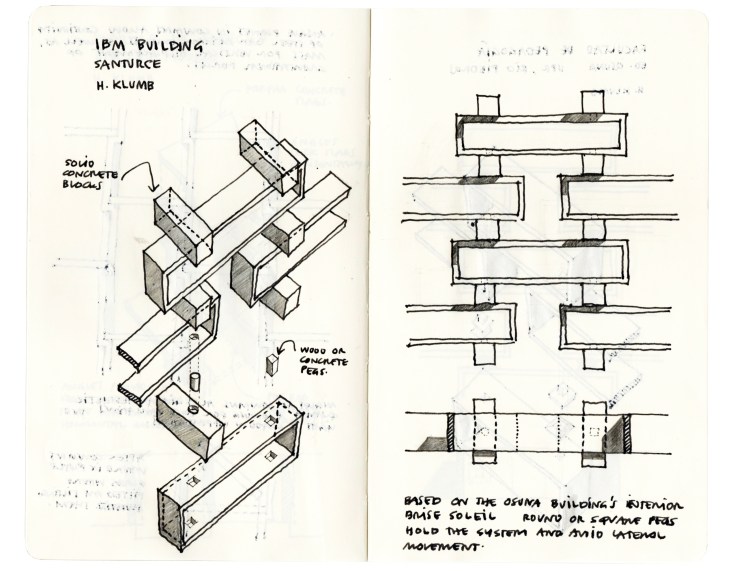 IBM BUILDING
SANTURCE
H. KLUMB
SOLID
CONCRETE
BLOCKS
WOOD OR
CONCRETE
PEGS.
BASED ON THE OSUNA BUILDING'S INTERIOR
BRISE SOLEIL ROUND OR SQUARE PEGS
HOLD THE SYSTEM AND AVIO LATERAL
MOVEMENT.